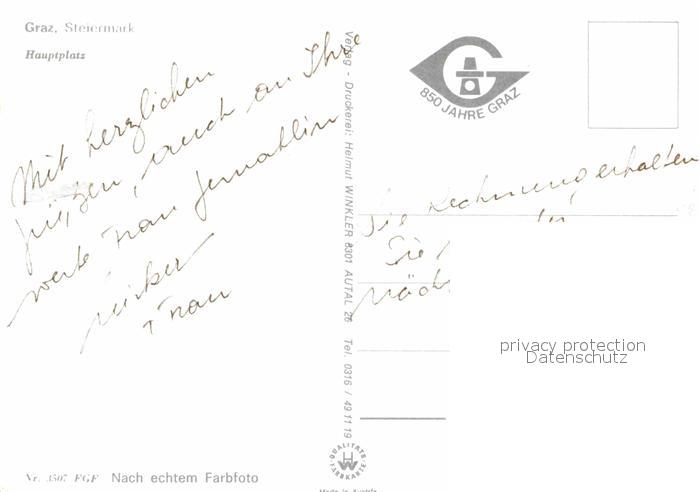 Graz, Steiermark
Hauptplatz
Mit herzlichen
auch an Ihre
werte Frau Gemahlin
Frau
Verlag - Druckerei: Helmut WINKLER 8301 AUTAL 26 Tel. 0316 / 49 11 19
850 JAHRE GRAZ
Die Rechnung erhalten
Sie
privacy protection
Datenschutz
QUALITÄTS-
FARBKARTE
Nr. 3507 FGF Nach echtem Farbfoto
Made in Austria